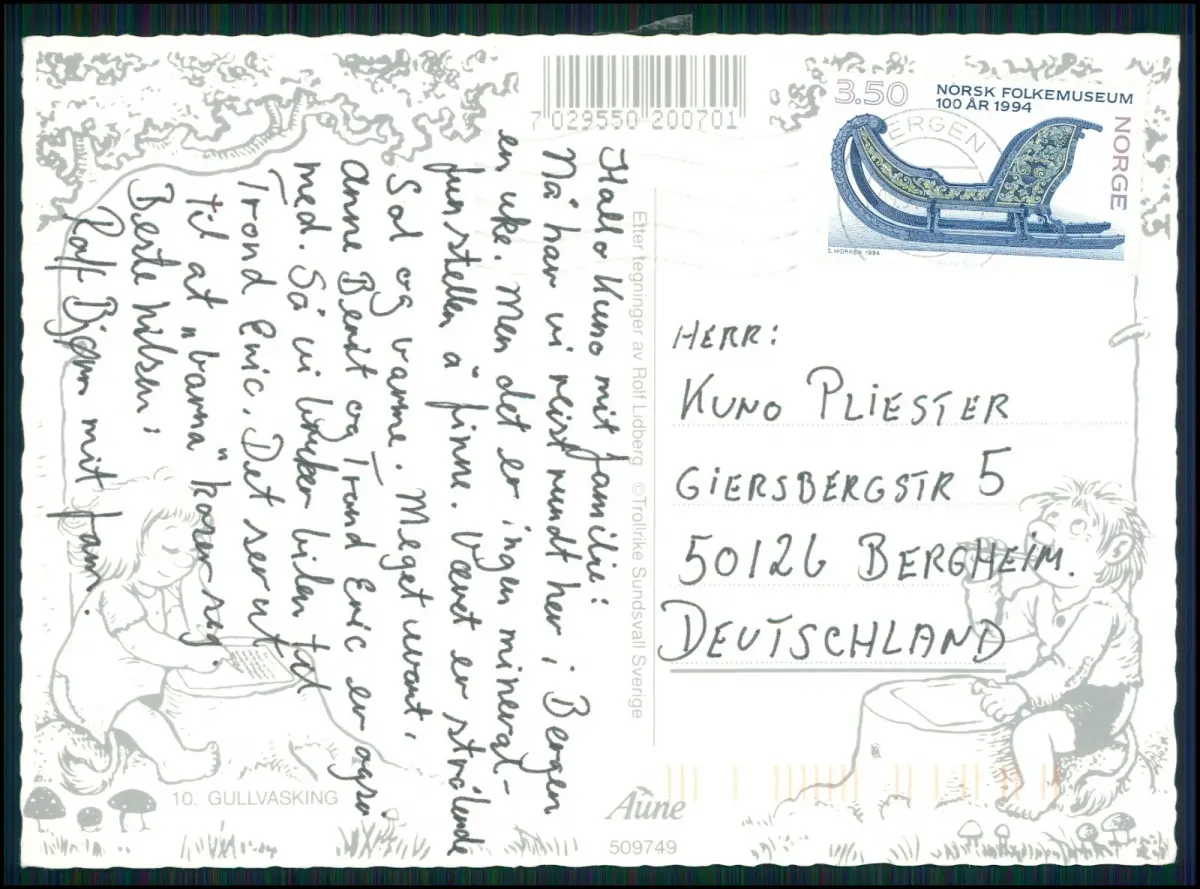 7 029550 200701
3.50
NORSK FOLKEMUSEUM
100 ÅR 1994
NORGE
BERGEN
S. MORKEN 1994
Hallo Kuno mit familie:
Nå har vi reist rundt her i Bergen
en uke. Men det er ingen mineral-
funstellen å finne. Været er strålende
Sol og varme. Meget uvant.
Anne Berit og Trond Eric er også
med. Så vi bruker bilen tad
Trond Eric. Det ser ut
til at "barna" koser seg.
Beste hilsen:
Rolf Bjørn mit fam.
Etter tegninger av Rolf Lidberg ©Trollrike Sundsvall Sverige
HERR:
KUNO PLIESTER
GIERSBERGSTR 5
50126 BERGHEIM.
DEUTSCHLAND
10. GULLVASKING
Aune
509749